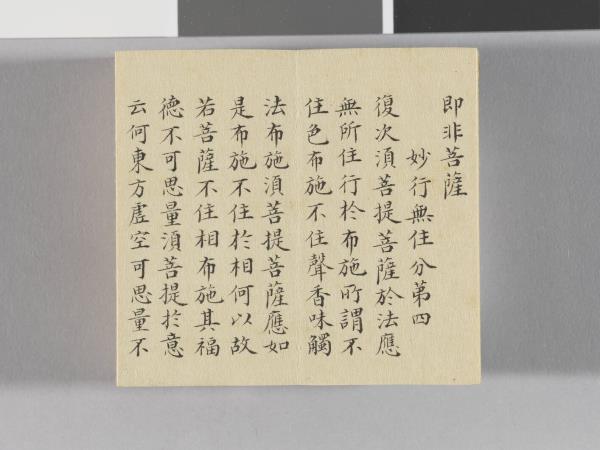 即非菩薩
妙行無住分第四
復次須菩提菩薩於法應
無所住行於布施所謂不
住色布施不住聲香味觸
法布施須菩提菩薩應如
是布施不住於相何以故
若菩薩不住相布施其福
德不可思量須菩提於意
云何東方虛空可思量不